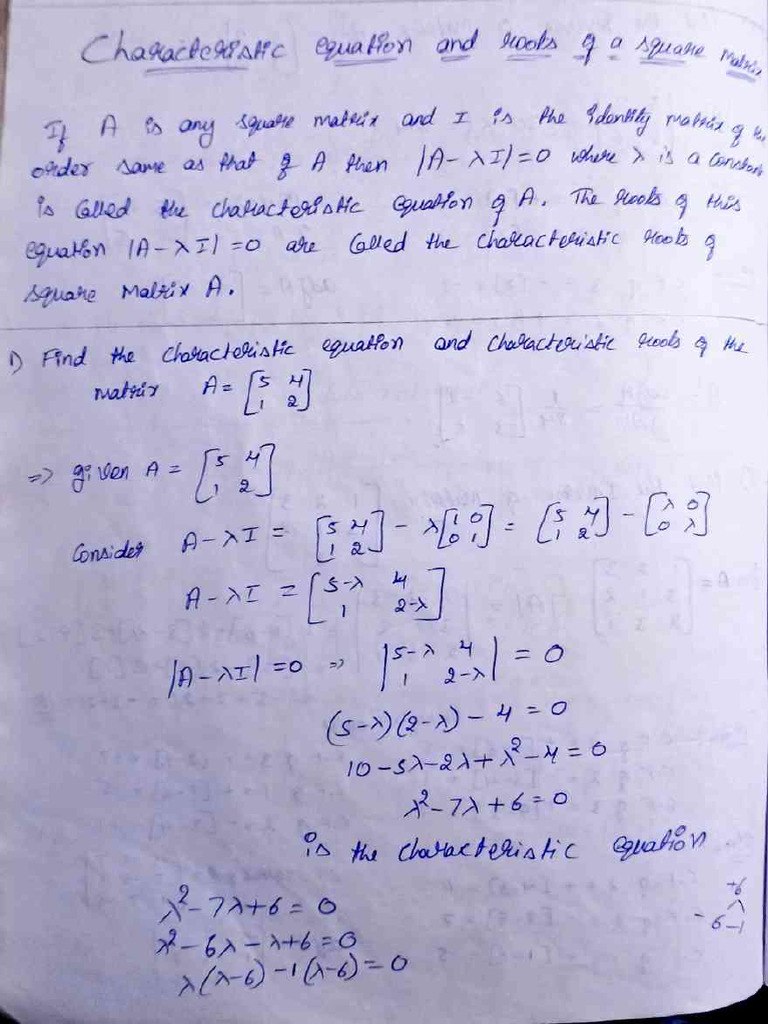 Characteristic equation and roots of a square matrix
If A is any square matrix and I is the Identity matrix of the
order same as that of A then |A-λI|=0 where λ is a constant
is called the characteristic equation of A. The roots of this
equation |A-λI|=0 are called the characteristic roots of
square matrix A.
1) Find the characteristic equation and characteristic roots of the
matrix A = [5 4; 1 2]
=> given A = [5 4; 1 2]
Consider A-λI = [5 4; 1 2] - λ[1 0; 0 1] = [5 4; 1 2] - [λ 0; 0 λ]
A-λI = [5-λ 4; 1 2-λ]
|A-λI|=0 => |5-λ 4; 1 2-λ| = 0
(5-λ)(2-λ) - 4 = 0
10-5λ-2λ+λ²-4=0
λ²-7λ+6=0
is the characteristic equation
λ²-7λ+6=0
+6
-6 -1
λ²-6λ-λ+6=0
λ(λ-6)-1(λ-6)=0